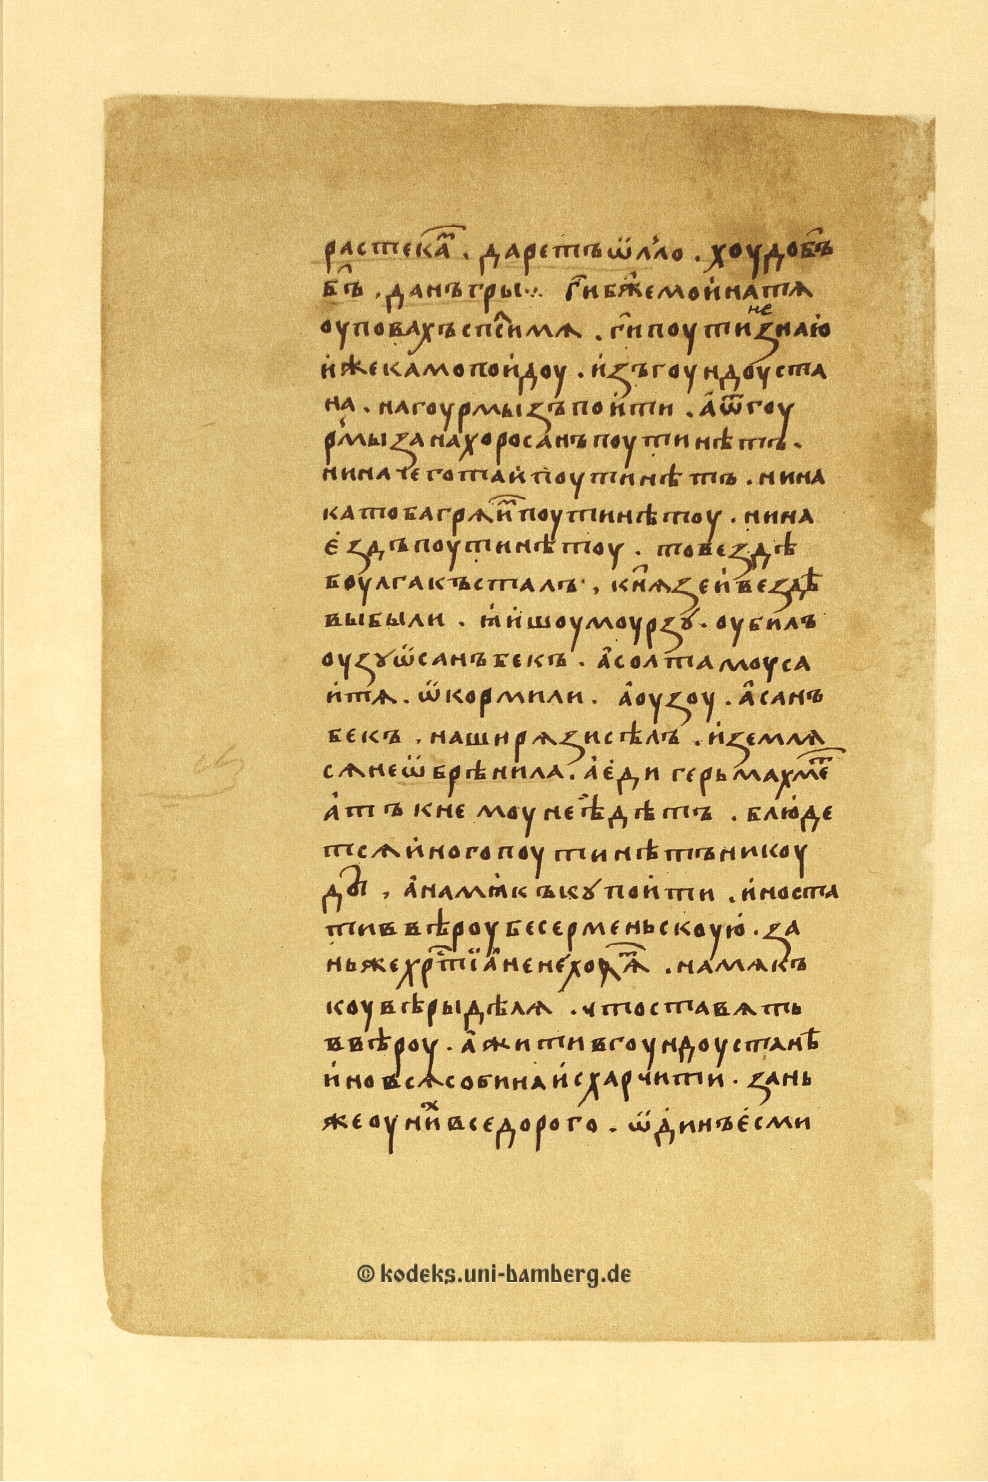 растекаⷨ҇. даретъѿлло. хоудобⷭ҇ъ
бг҃ъ. данъгры⁘ гⷭ҇ибж҃емоинатѧ
оуповахъспⷭ҇имѧ. гⷭ҇ипоутинезнаю
ижекамопоидоу. изъгоундоуста
на. нагоурмызъпоити. аѿгоу
рмызанахоросанъпоутинѣтъ.
niначеготаипоутинѣтъ. нина
катобагрѧиⷨпоутинѣтоу. нина
єздъпоутинѣтоу. товездѣ
боулгакъсталъ, кнѧзеивездѣ
выбыли. ꙗишоумоурзꙋ. оубилъ
оузꙋѡсанъбекъ. асолтамоуса
итѧ. ѡкормили. аоузоу. асанъ
бекъ. наширѧзисѣлъ. иземлѧ
сѧнеѡбрѣнила. аєдигерьмахмеⷮ
атъкнемоунеѣдѣтъ. блюде
тсѧиногопоутинѣтъникоу
ды, анамѧкъкꙋпоити. иноста
тивъвѣроубесерменьскоую. за
ньжехрⷭ҇тїаненехоⷣѧⷮ. намѧкъ
коувѣрыдѣлѧ. чтоставѧть
ввѣроу. ажитивгоундоустанѣ
иновсѧсобинаисхарчити. зань
жеоуниⷯвседорого. ѡдинъєсми
© kodeks.uni-bamberg.de